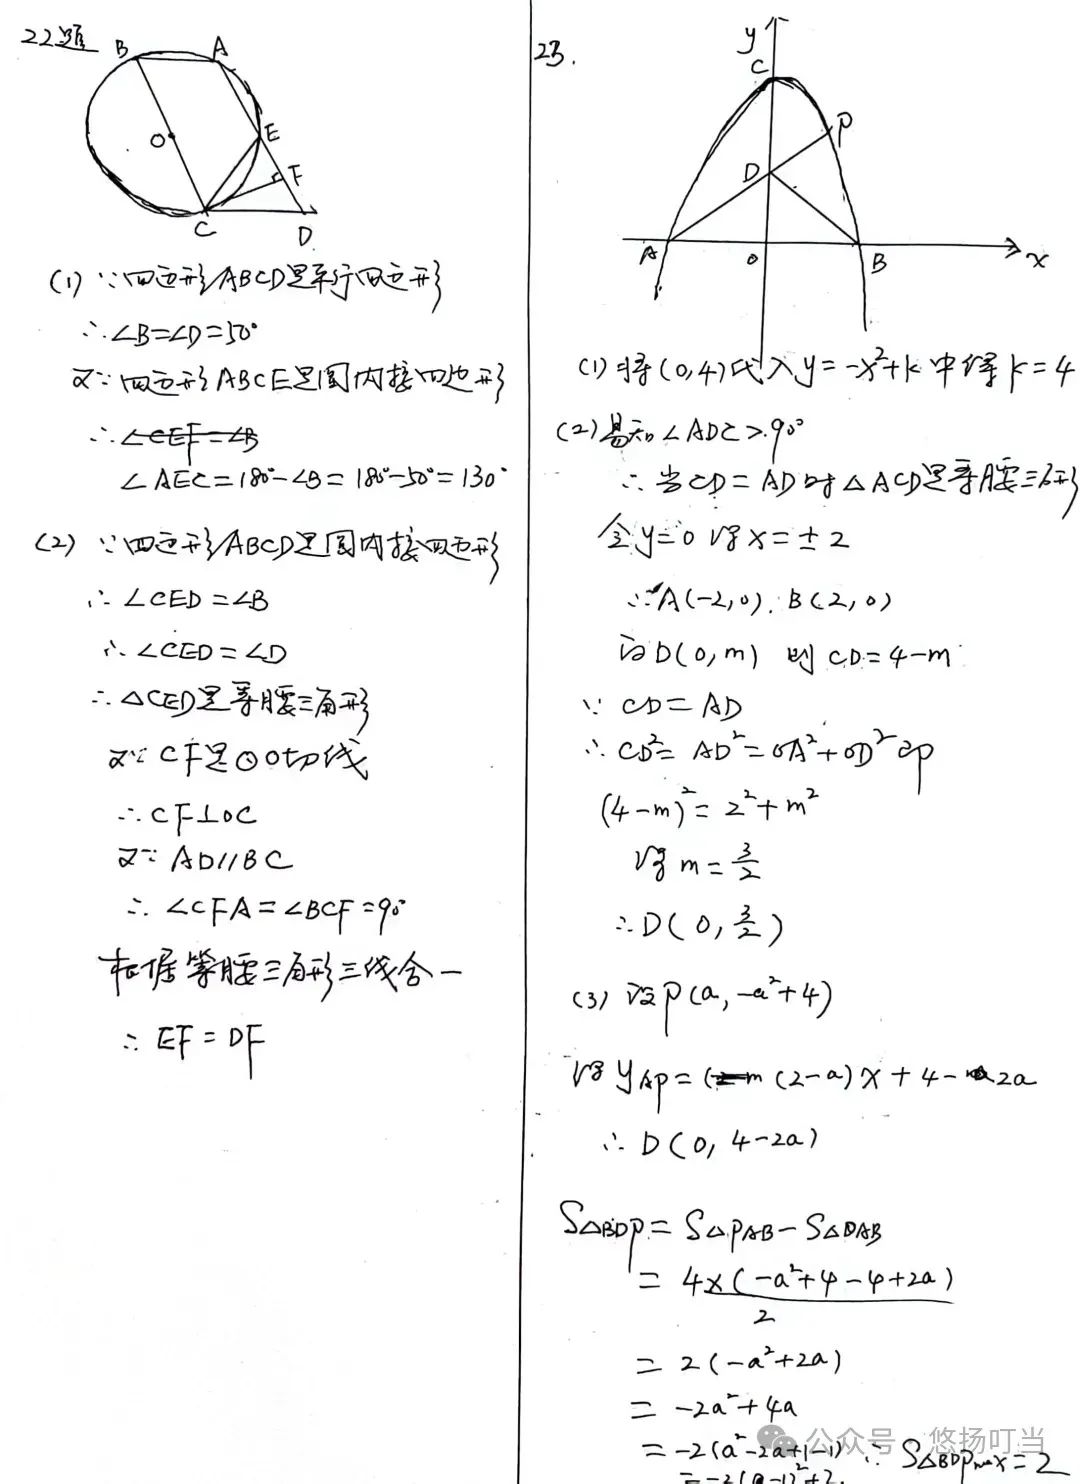 22题
B A
O
E
F
C
D
(1) ∵四边形ABCD是平行四边形
∴∠B=∠D=50°
又∵四边形ABCE是圆内接四边形
∴∠CEF=∠B
∠AEC=180°-∠B=180°-50°=130°
(2) ∵四边形ABCD是圆内接四边形
∴∠CED=∠B
∴∠CED=∠D
∴△CED是等腰三角形
又∵CF是⊙O切线
∴CF⊥OC
又∵AD//BC
∴∠CFA=∠BCF=90°
根据等腰三角形三线合一
∴EF=DF
23.
y
C
P
D
A O B x
(1)将(0,4)代入y=-x²+k中得k=4
(2)易知∠ADC>90°
∴当CD=AD时△ACD是等腰三角形
令y=0得x=±2
∴A(-2,0).B(2,0)
设D(0,m) 则CD=4-m
∵CD=AD
∴CD²=AD²=OA²+OD²即
(4-m)²=2²+m²
得m=3/2
∴D(0,3/2)
(3)设P(a,-a²+4)
得yAP=(2-a)x+4-2a
∴D(0,4-2a)
S△BDP=S△PAB-S△DAB
=4×(-a²+4-4+2a)/2
=2(-a²+2a)
=-2a²+4a
=-2(a²-2a+1-1) ∴S△BDPmax=2
=-2(a-1)²+2.
公众号·悠扬叮当